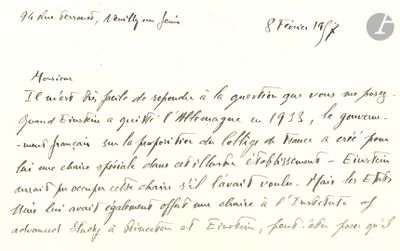 94 Rue Perronet, Neuilly sur Seine
8 Février 1957
Monsieur
Il m'est très facile de répondre à la question que vous me posez.
Quand Einstein a quitté l'Allemagne en 1933, le gouverne-
-ment français sur la proposition du Collège de France a créé pour
lui une chaire spéciale dans cet illustre établissement - Einstein
aurait pu occuper cette chaire s'il l'avait voulu. Mais les Etats
Unis lui avait également offert une chaire à l'Institute of
advanced Study à Princeton et Einstein, peut-être parce qu'il